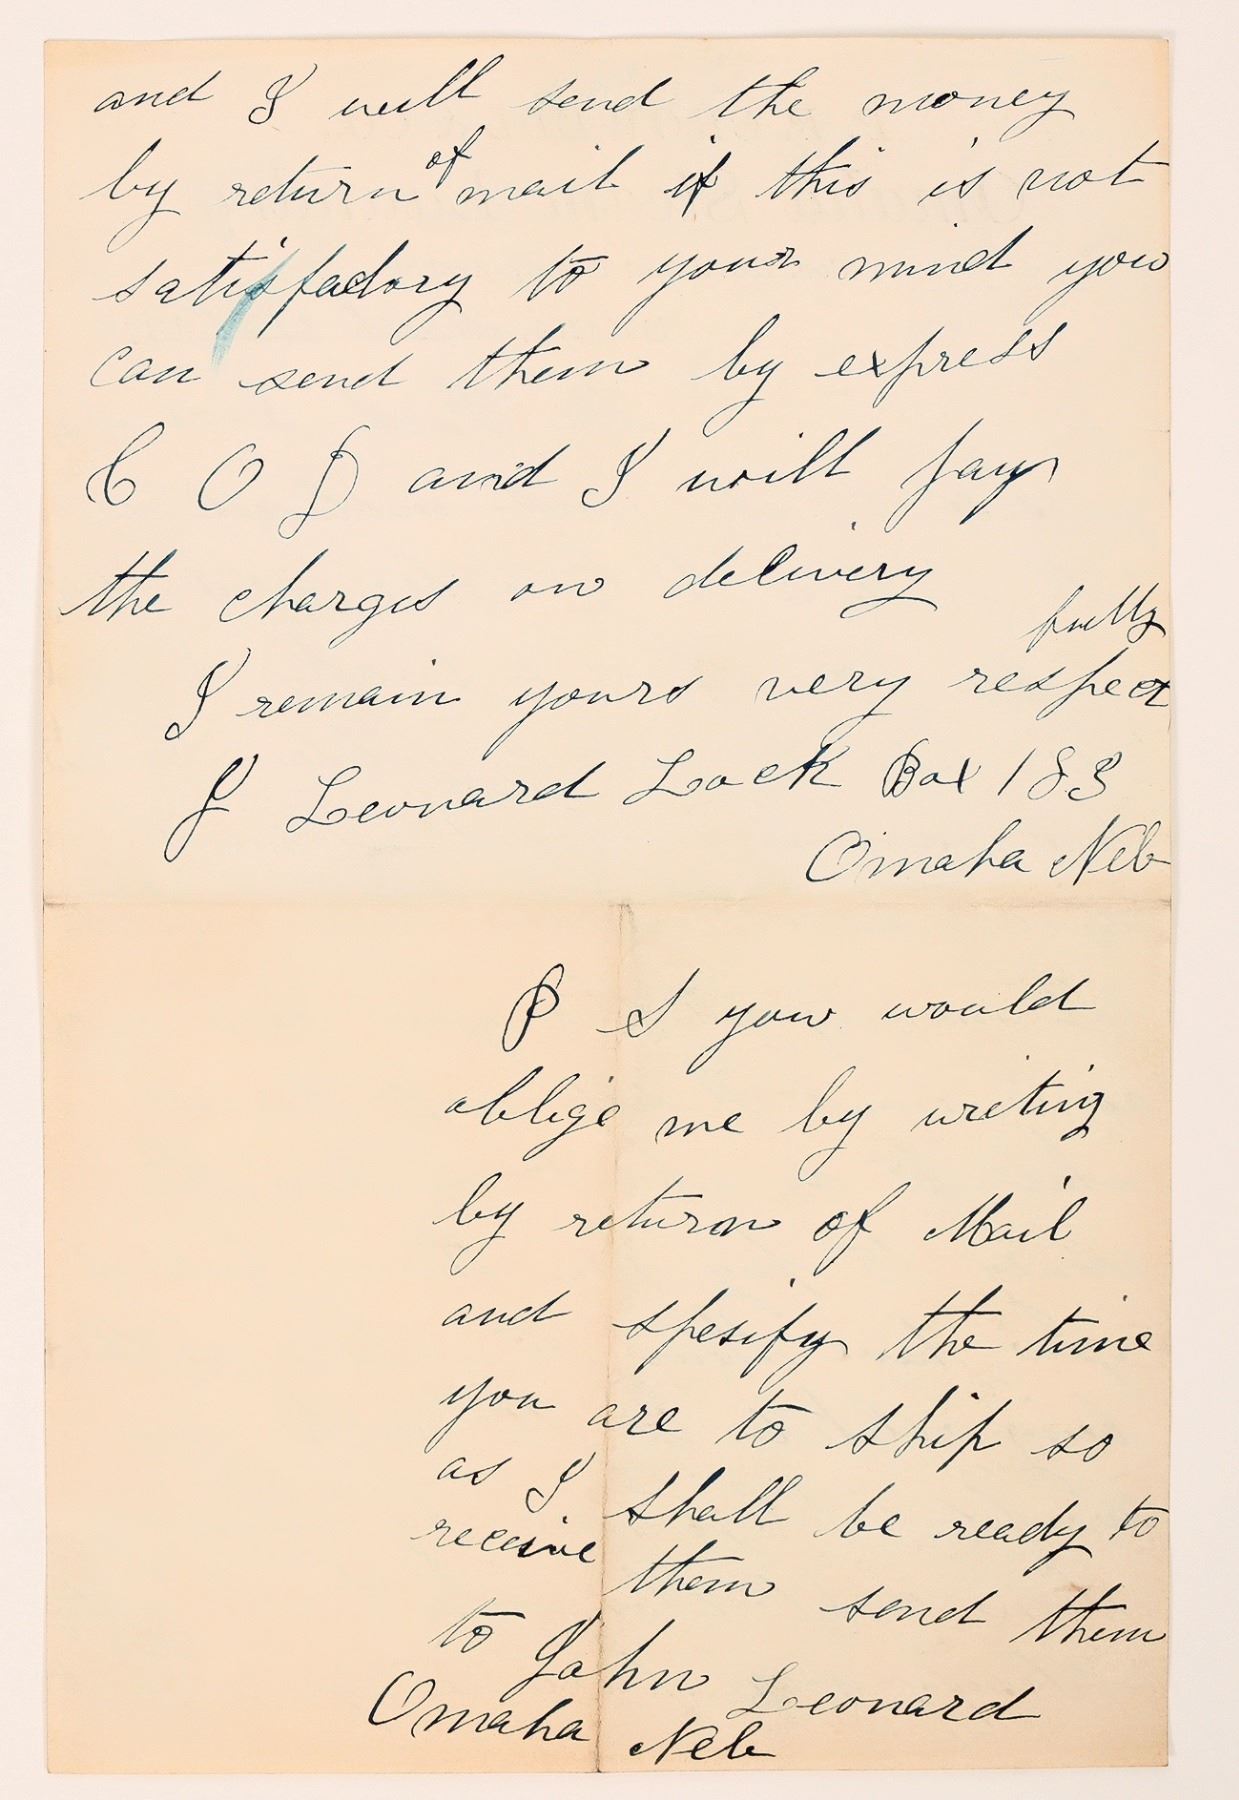 and I will send the money
by return of mail if this is not
satisfactory to your mind you
can send them by express
C O D and I will pay
the charges on delivery
I remain yours very respectfully
J Leonard Lock Box 183
Omaha Neb
P S you would
oblige me by writing
by return of Mail
and spesify the time
you are to ship so
as I shall be ready to
receive them send them
to John Leonard
Omaha Neb